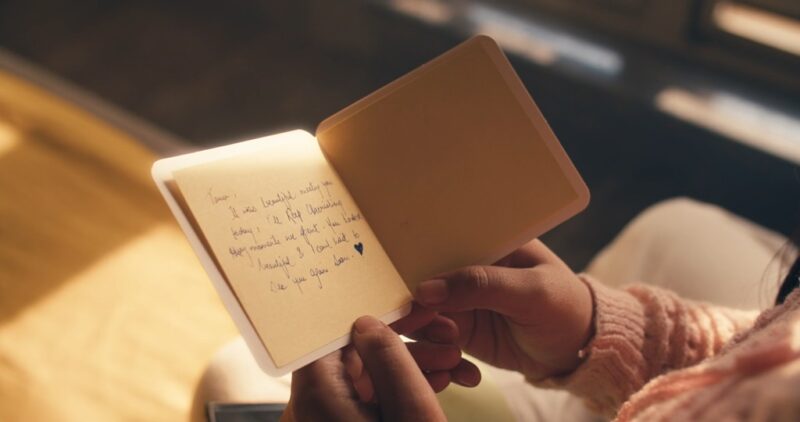 It was beautiful meeting you
today, I'll keep cherishing
moments we spent. You looked
beautiful & I can't wait to
see you again soon. ♥